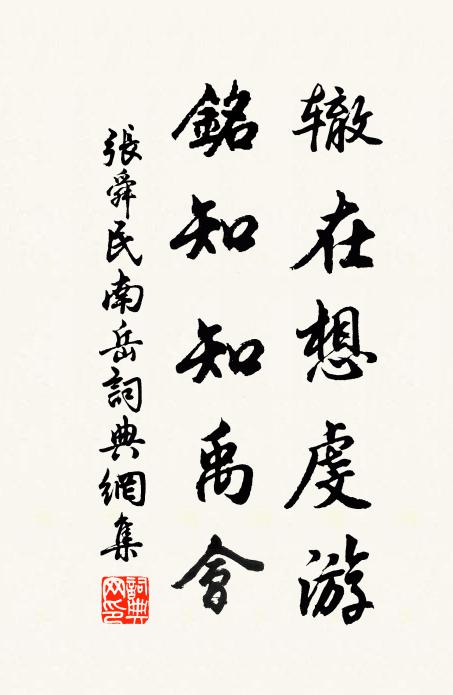 辙在想虔游
銘知知禹會
張舜民南岳詞典網集
詞典
网印